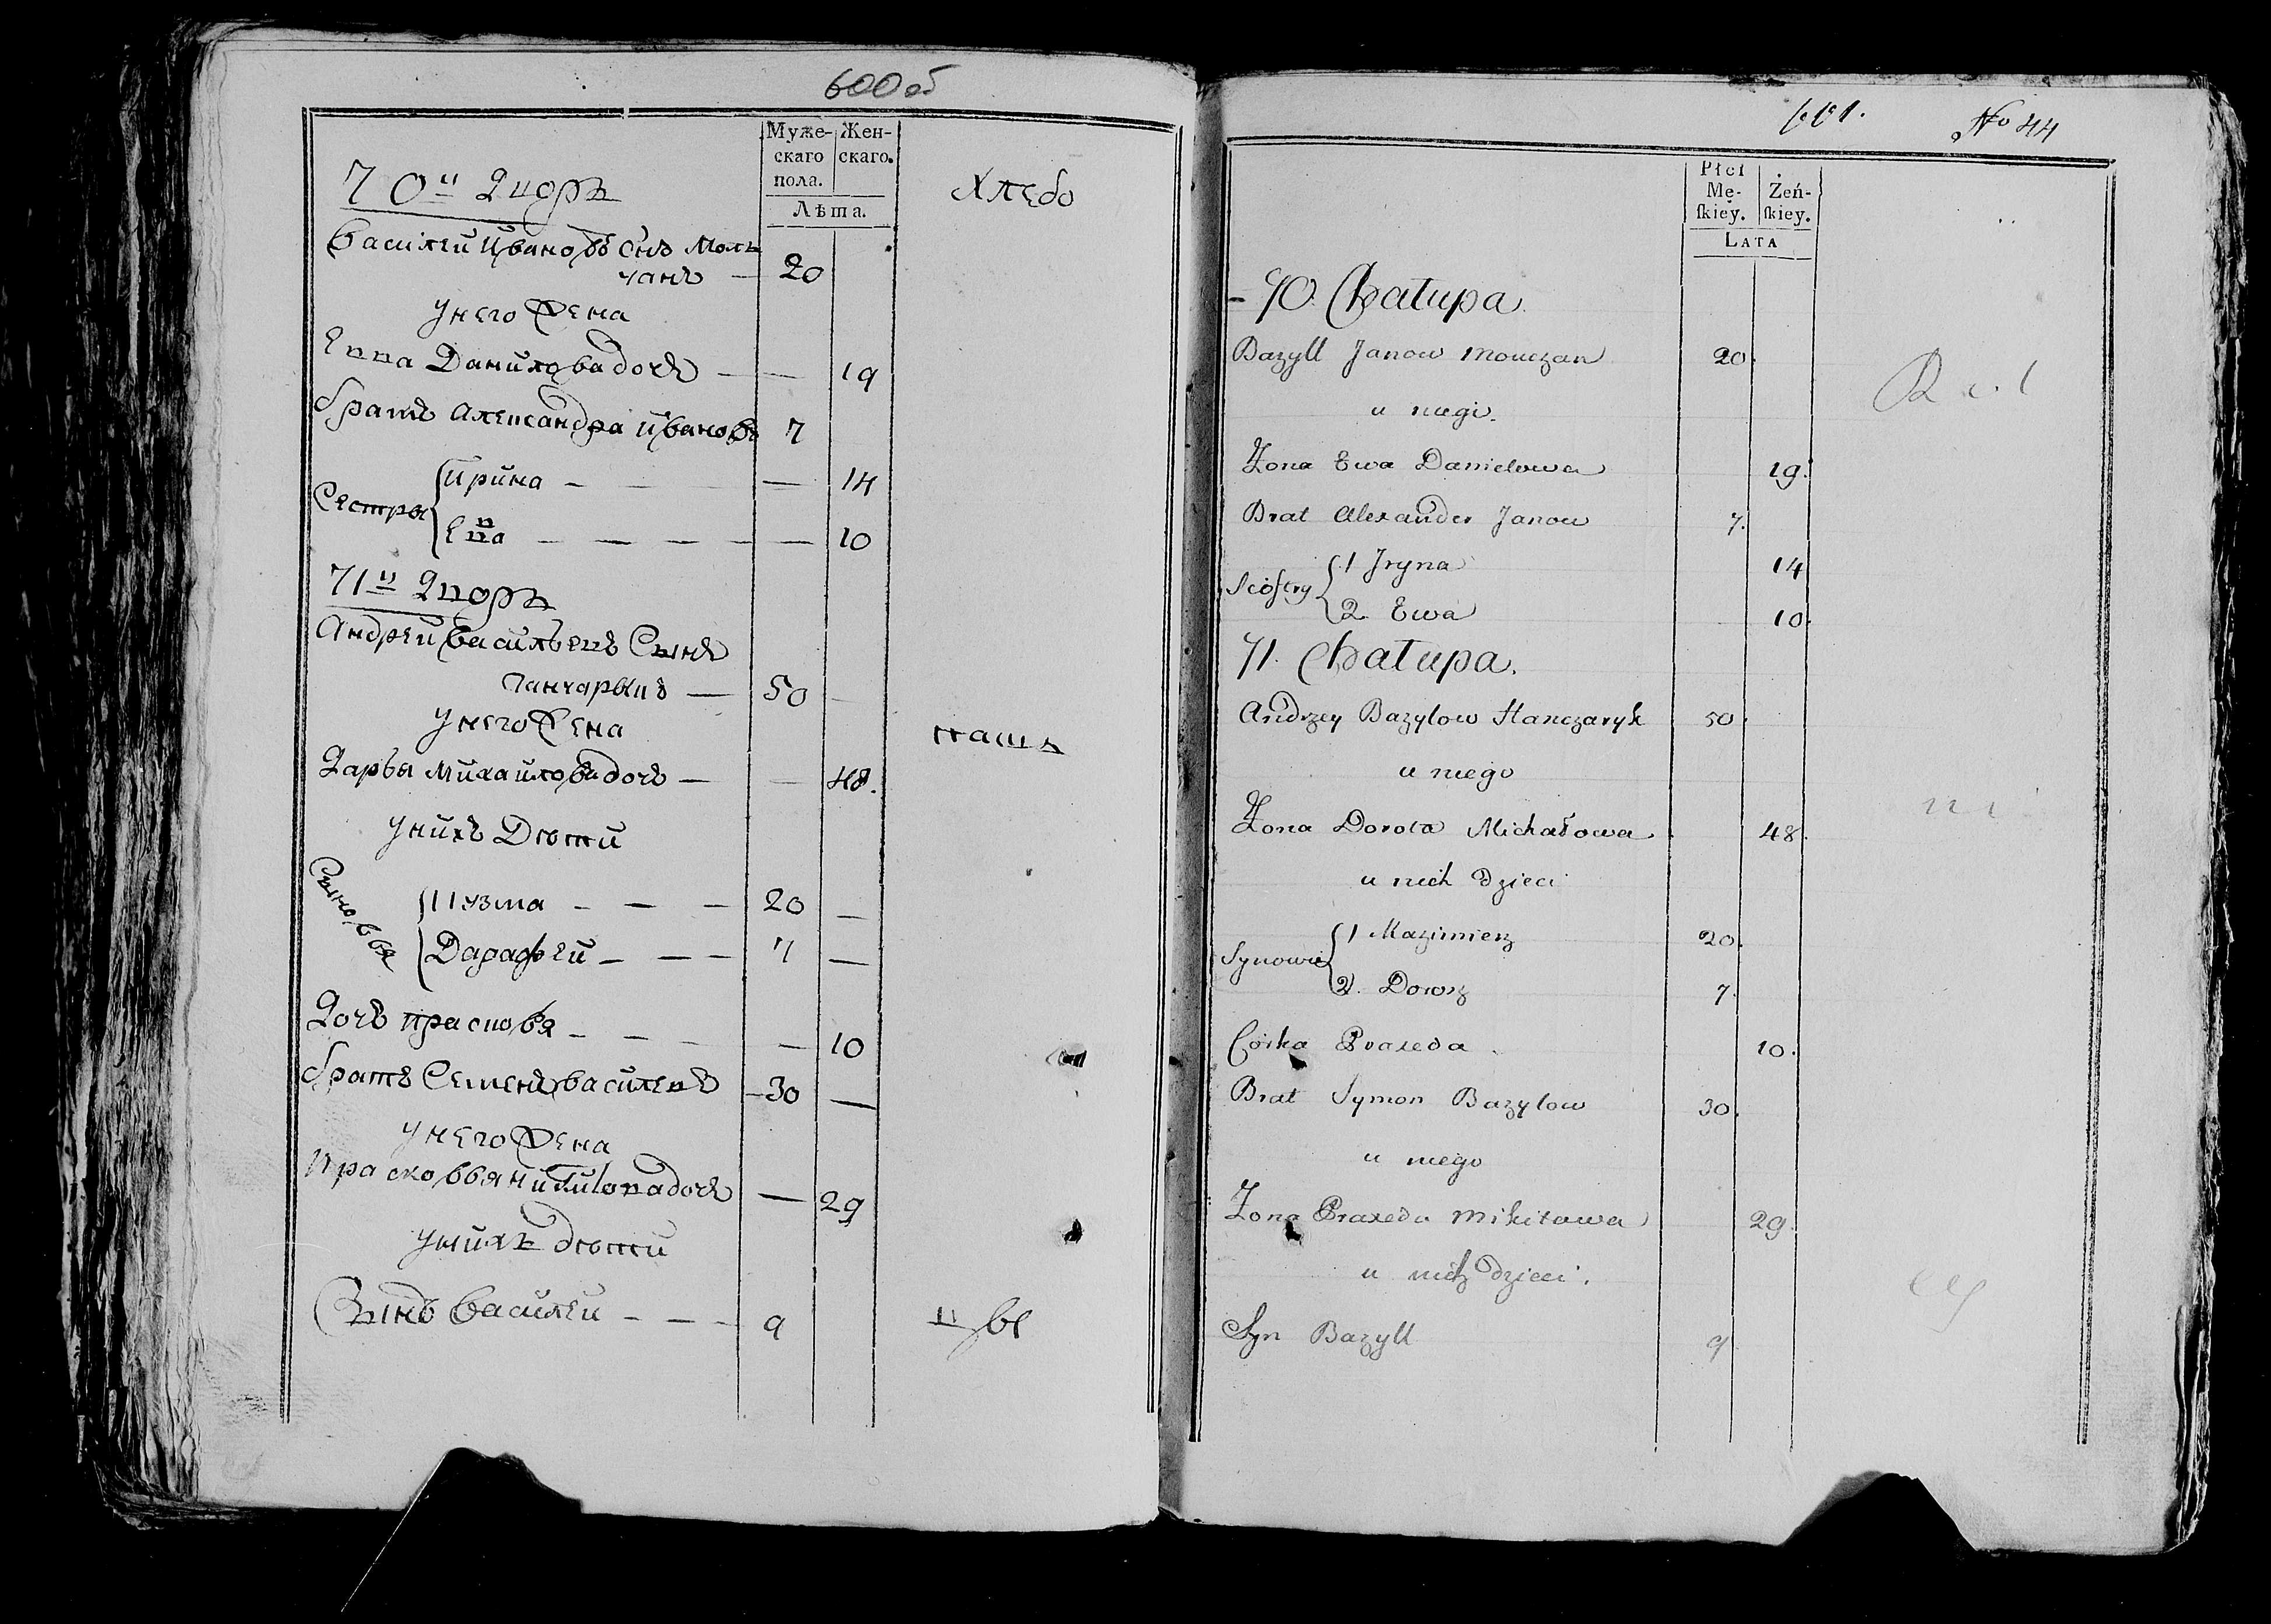 600 об
Муже- Жен-
скаго скаго.
пола.
Лѣта.
70й Двор
Хлебо
Василей Иванов Снъ Мол
чанъ — 20
У него Жена
Евва Данилова дочь — — 19
братъ Александра Иванов 7
Сестры
Ирина — — 14
Евва — — — — — 10
71й Двор
Андрей Васильевъ Сынъ
Ганчарыкъ — 50 —
У него Жена
паш
Дарья Михайлова дочь — — 48.
У нихъ Дѣти
Сыновья
Кузма — — — 20 —
Дарафей — — — 7 —
Дочь Прасковья — — — — 10
братъ Семенъ Василевъ — 30 —
У него Жена
Прасковья Никитова дочь — 29
У нихъ дѣти
Сынъ Василей — — — 9
цы
601. No 44
Płci
Mę- Żeń-
ſkiey. ſkiey.
LATA
- 70. Chatupa
Bazyll Janow Mouczan 20.
u niego.
Żona Ewa Danielowa 19.
Brat Alexander Janow 7.
Sioſtry
1 Jryna 14
2. Ewa 10.
71. Chatupa.
Andrzey Bazylow Hanczaryk 50.
u niego
Żona Dorota Michałowa. 48.
u nich Dzieci
Synowie
1 Kazimierz 20.
2. Dorosz 7.
Córka Praxeda 10.
Brat Symon Bazylow 30.
u niego
Żona Praxeda Mikitowa 29.
u nich Dzieci.
Syn Bazyll 9